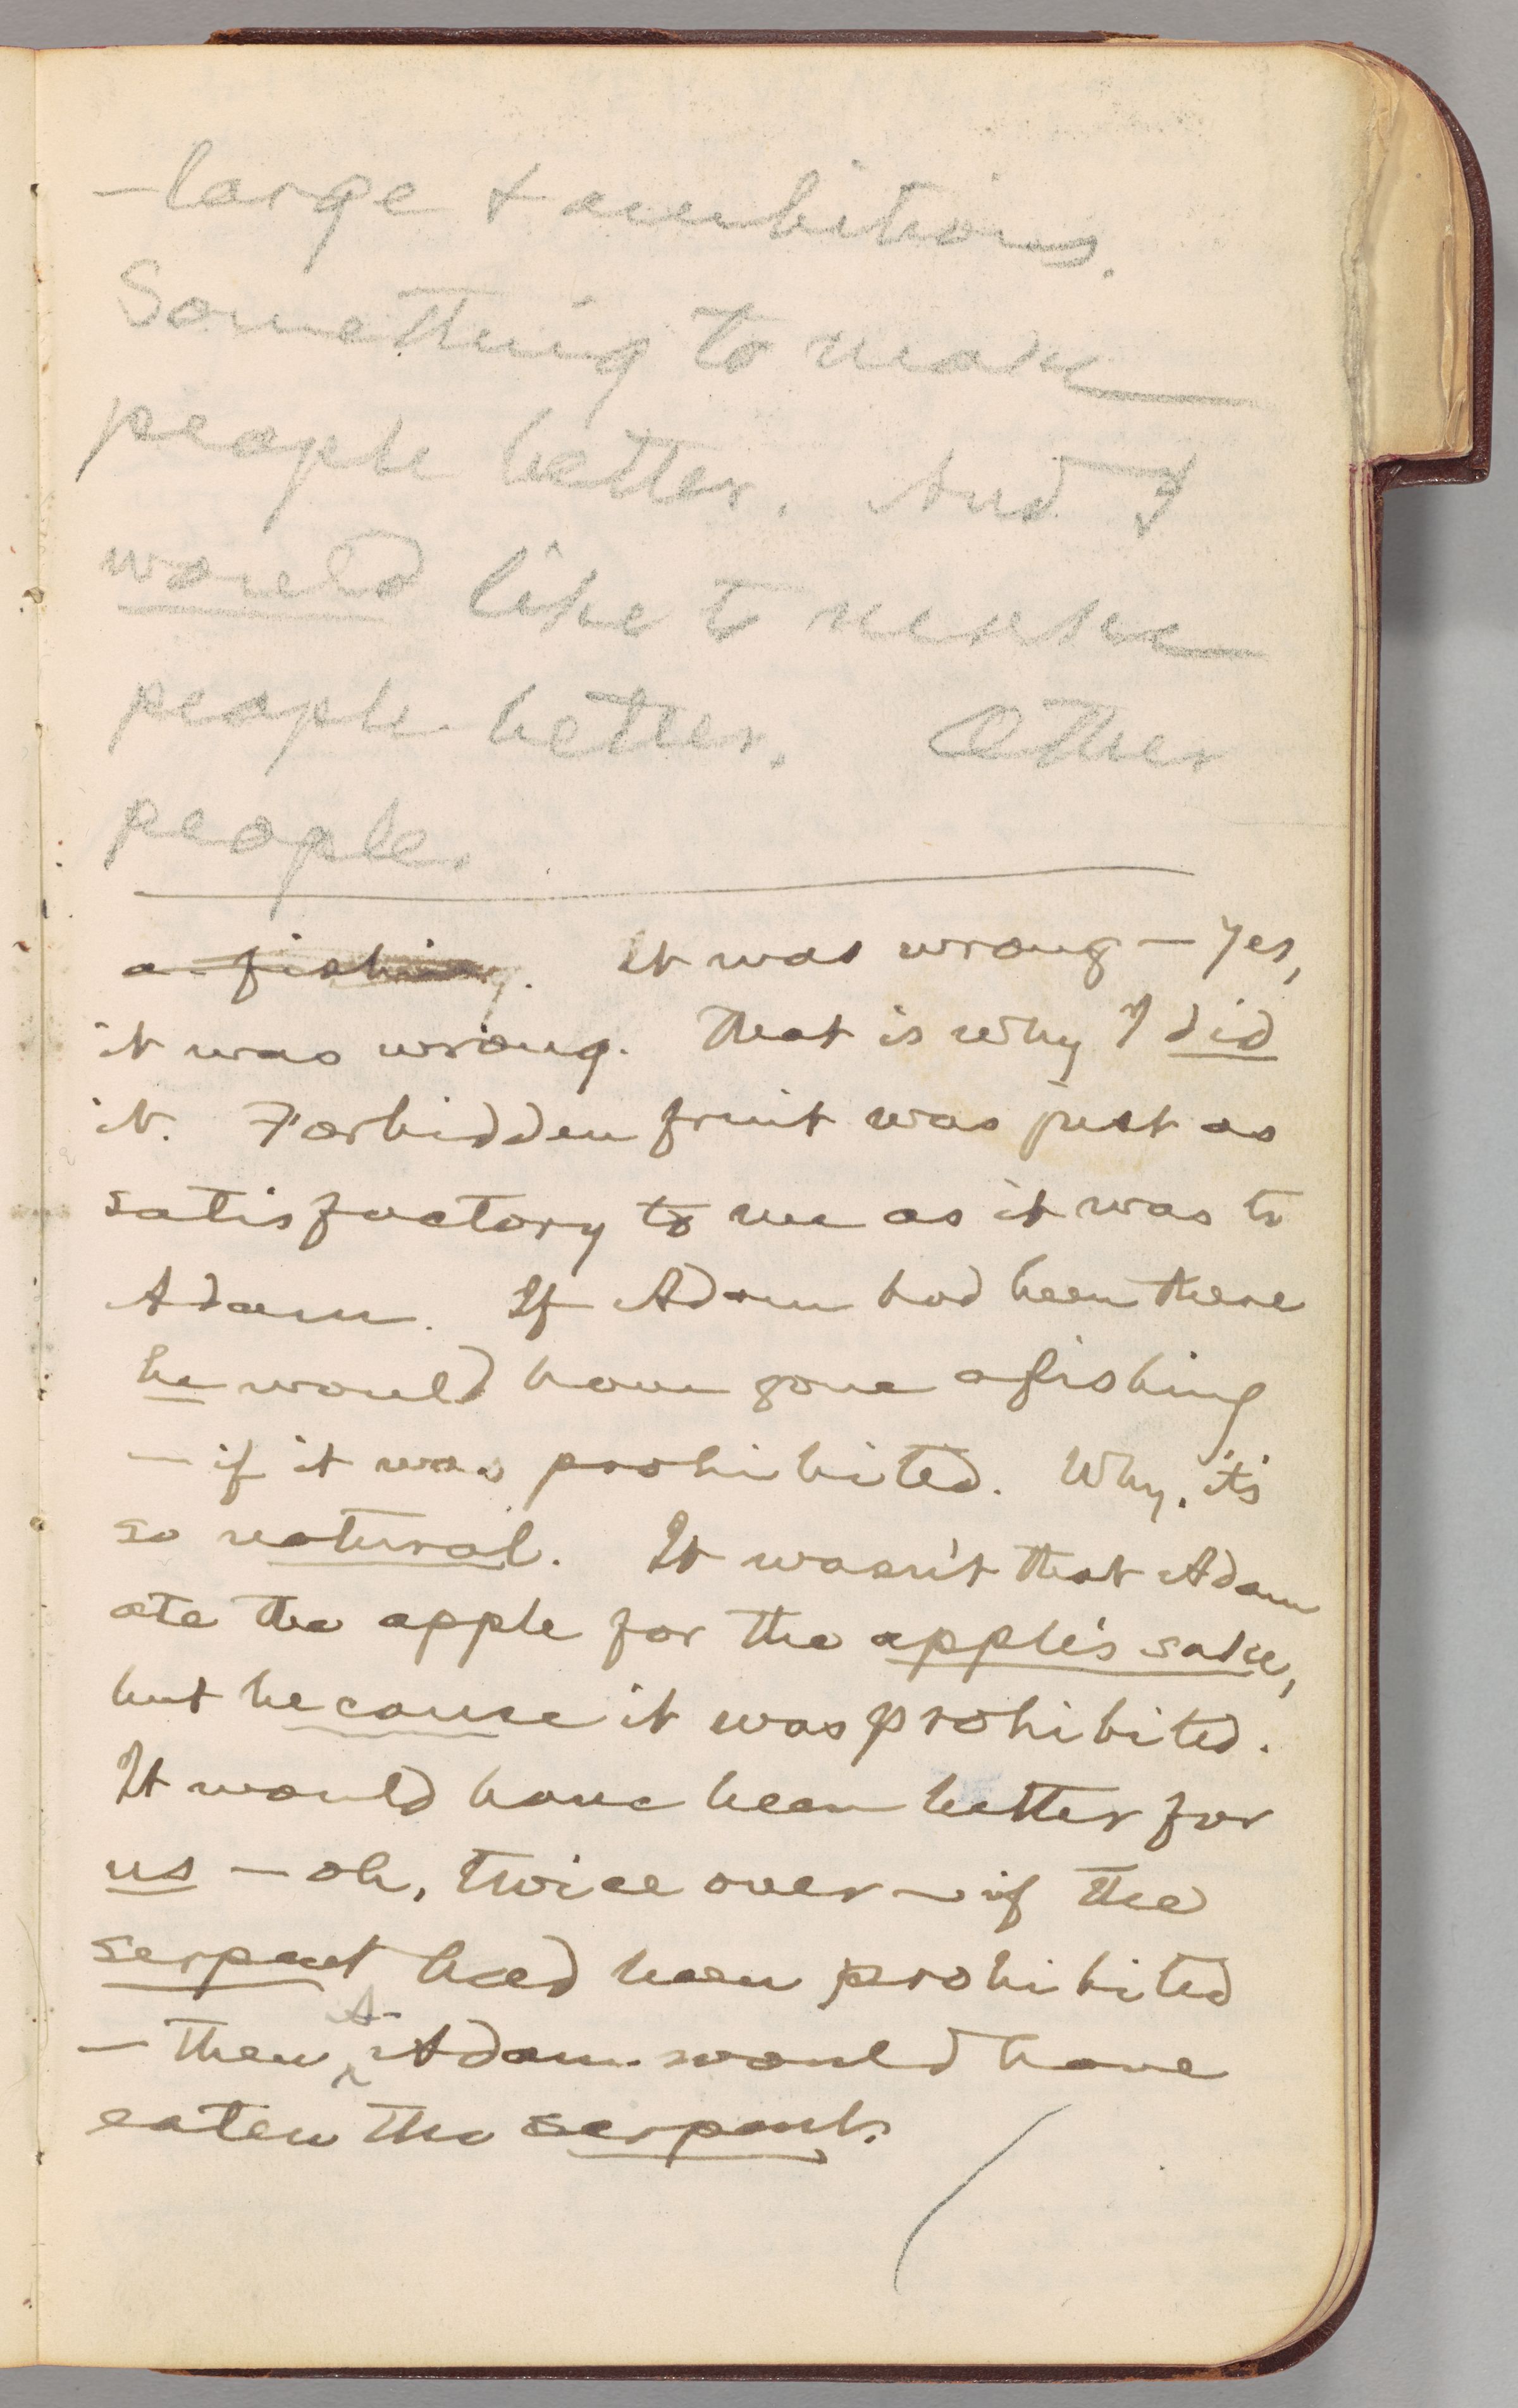 —large & ambitious.
Something to make
people better. And I
would like to make
people better. Other
people.
a-fishing. It was wrong — Yes,
it was wrong. That is why I did
it. Forbidden fruit was just as
satisfactory to me as it was to
Adam. If Adam had been there
he would have gone afishing
— if it was prohibited. Why, it's
so natural. It wasn't that Adam
ate the apple for the apple's sake,
but because it was prohibited.
It would have been better for
us — oh, twice over — if the
serpent had been prohibited
— then Adam would have
eaten the serpent.